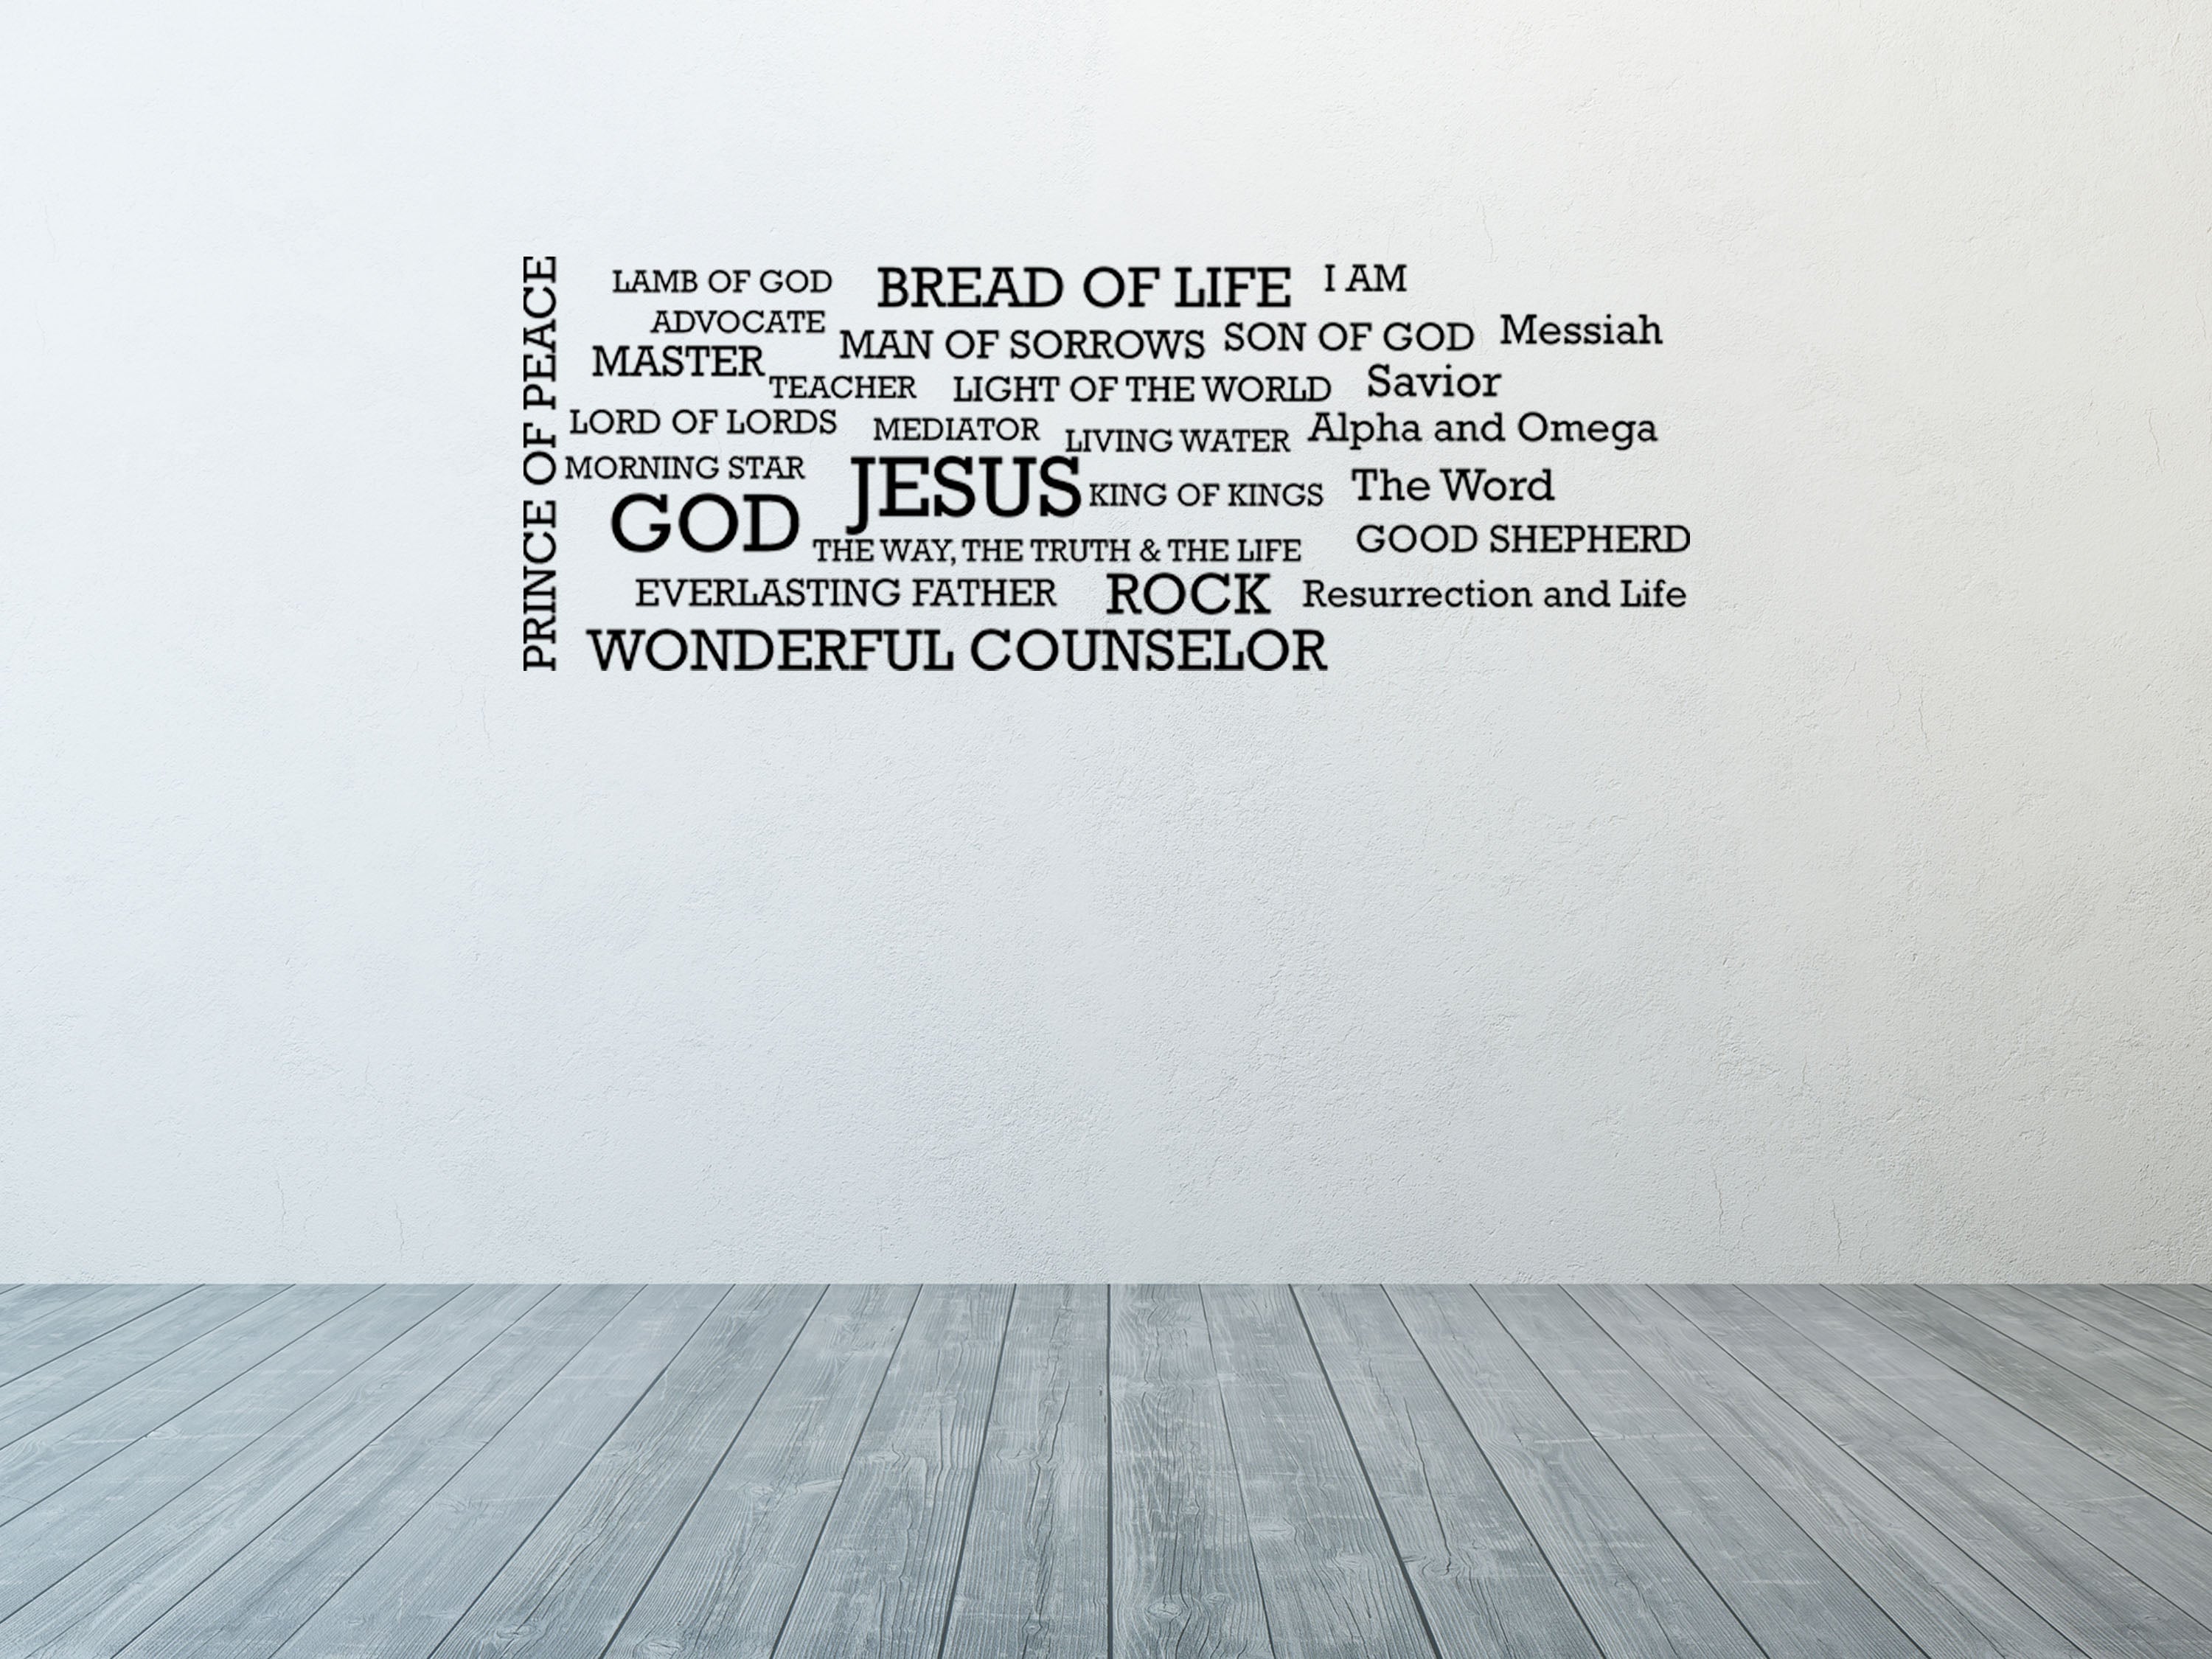 PRINCE OF PEACE
LAMB OF GOD BREAD OF LIFE I AM
ADVOCATE MAN OF SORROWS SON OF GOD Messiah
MASTER TEACHER LIGHT OF THE WORLD Savior
LORD OF LORDS MEDIATOR LIVING WATER Alpha and Omega
MORNING STAR JESUS KING OF KINGS The Word
GOD THE WAY, THE TRUTH & THE LIFE GOOD SHEPHERD
EVERLASTING FATHER ROCK Resurrection and Life
WONDERFUL COUNSELOR